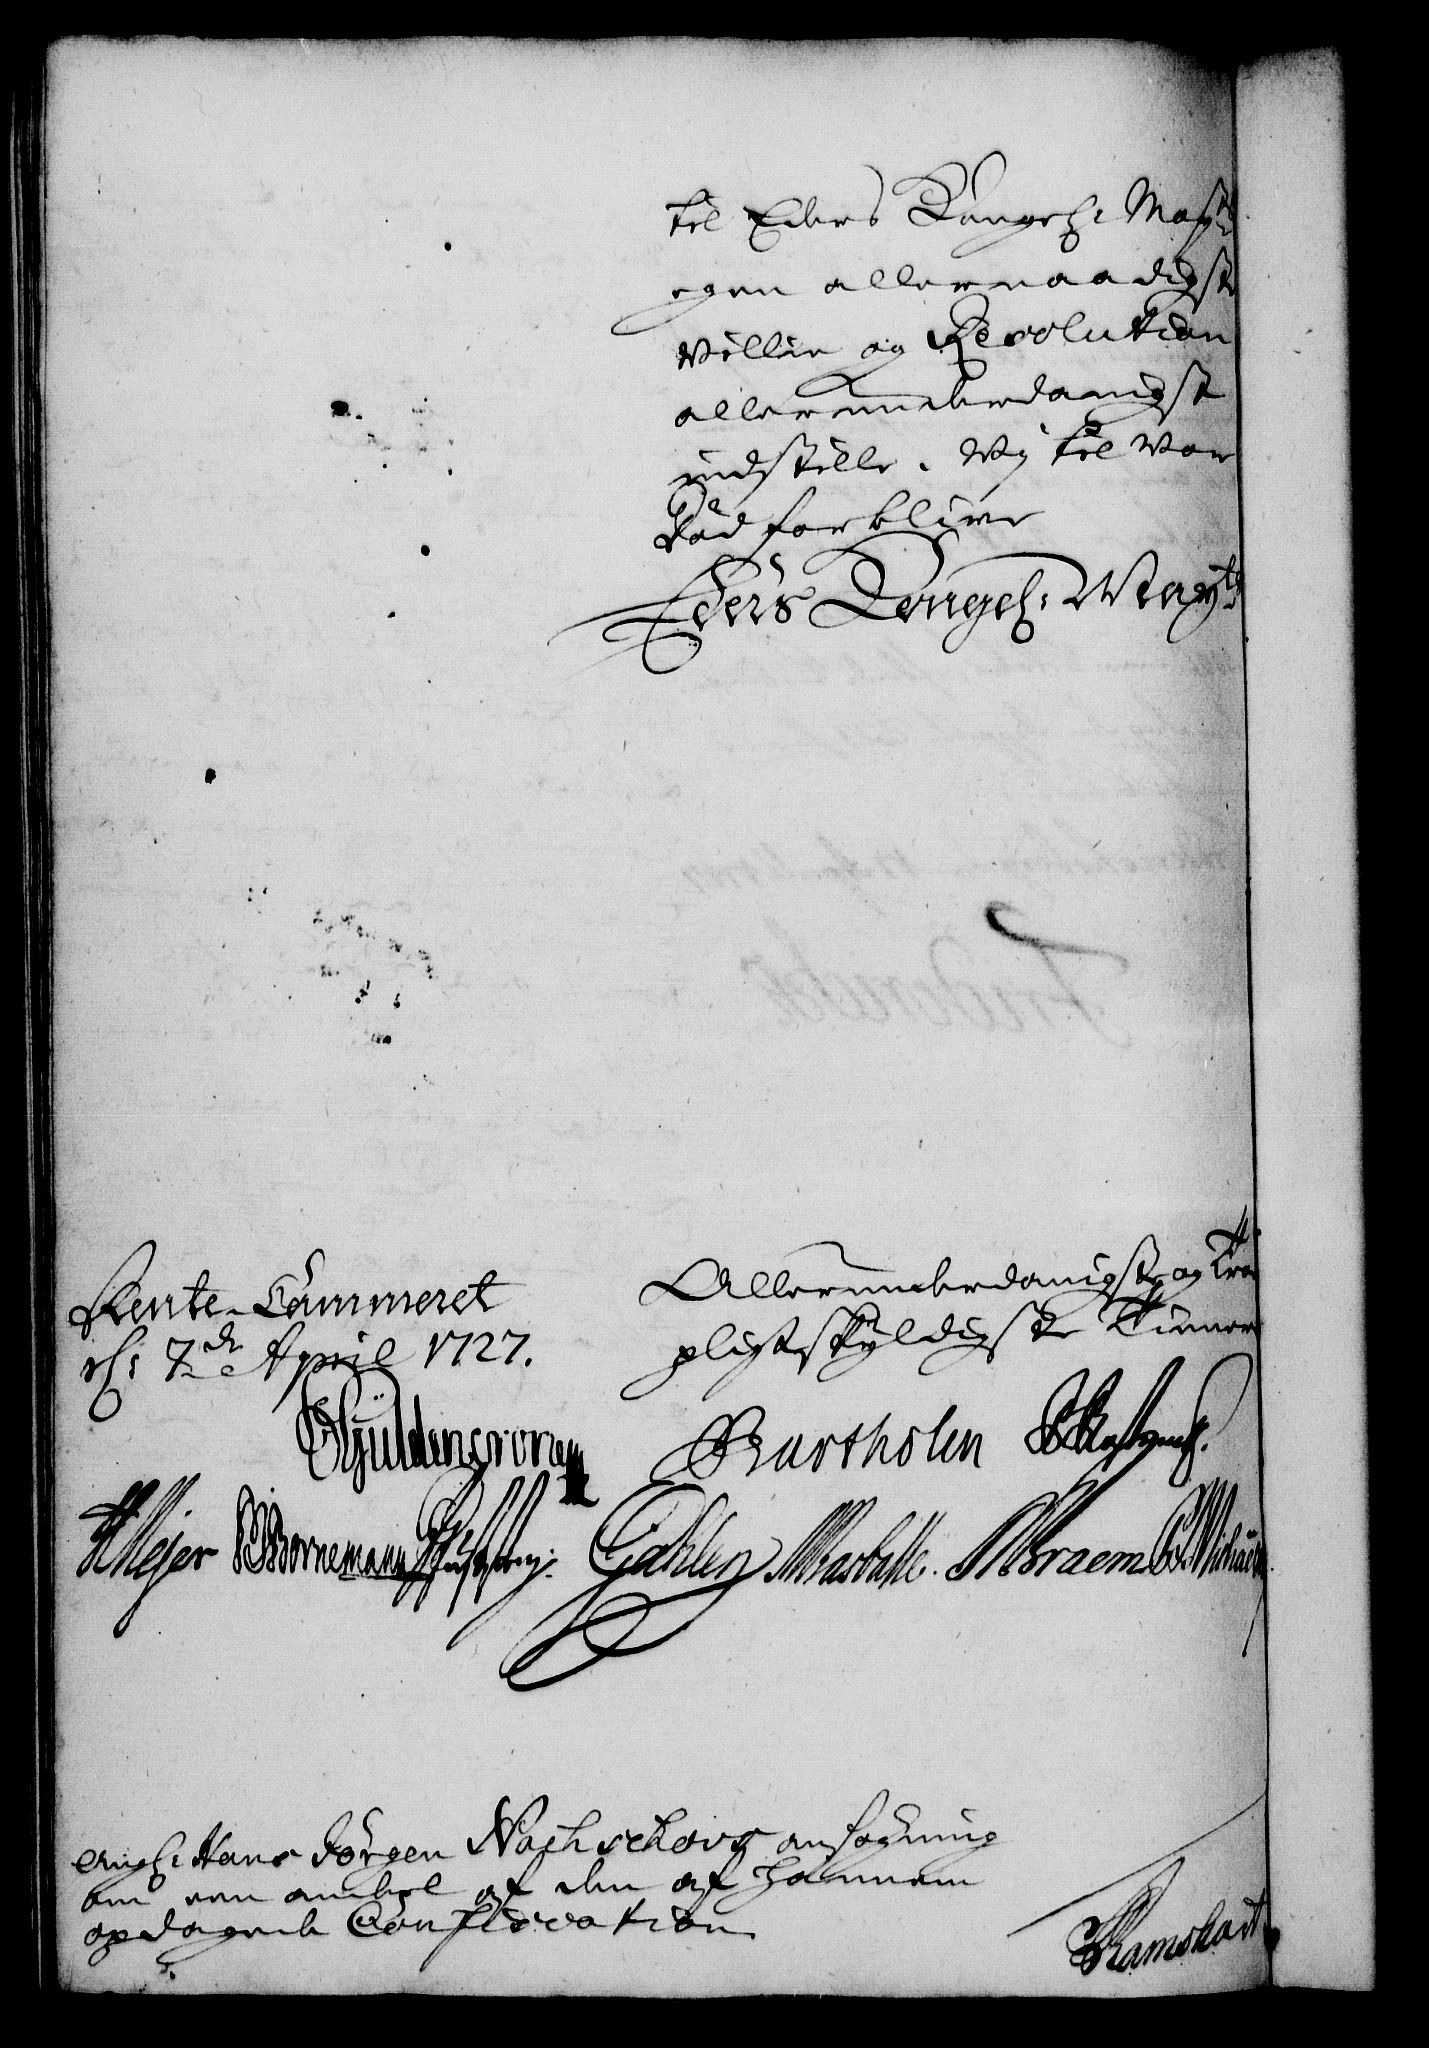 til Eders Kongel: Mayts
egen allernaadigste
Villie og Resolution
allerunderdanigst
indstille. Wj til vor
Död forblive
Eders Kongel: Mayts
Rente-Cammeret
d: 7de April 1727.
Allerunderdanigste og Troe
pligtskyldigste Tienere
CGüldencrone
Bartholin
HMejer BBornemann Gahlen Wrasbille. Braem
ang: Hans Jörgen Nachschovs ansögning
om een andeel af den af hannem
opdagede Confiscation
Ramshart